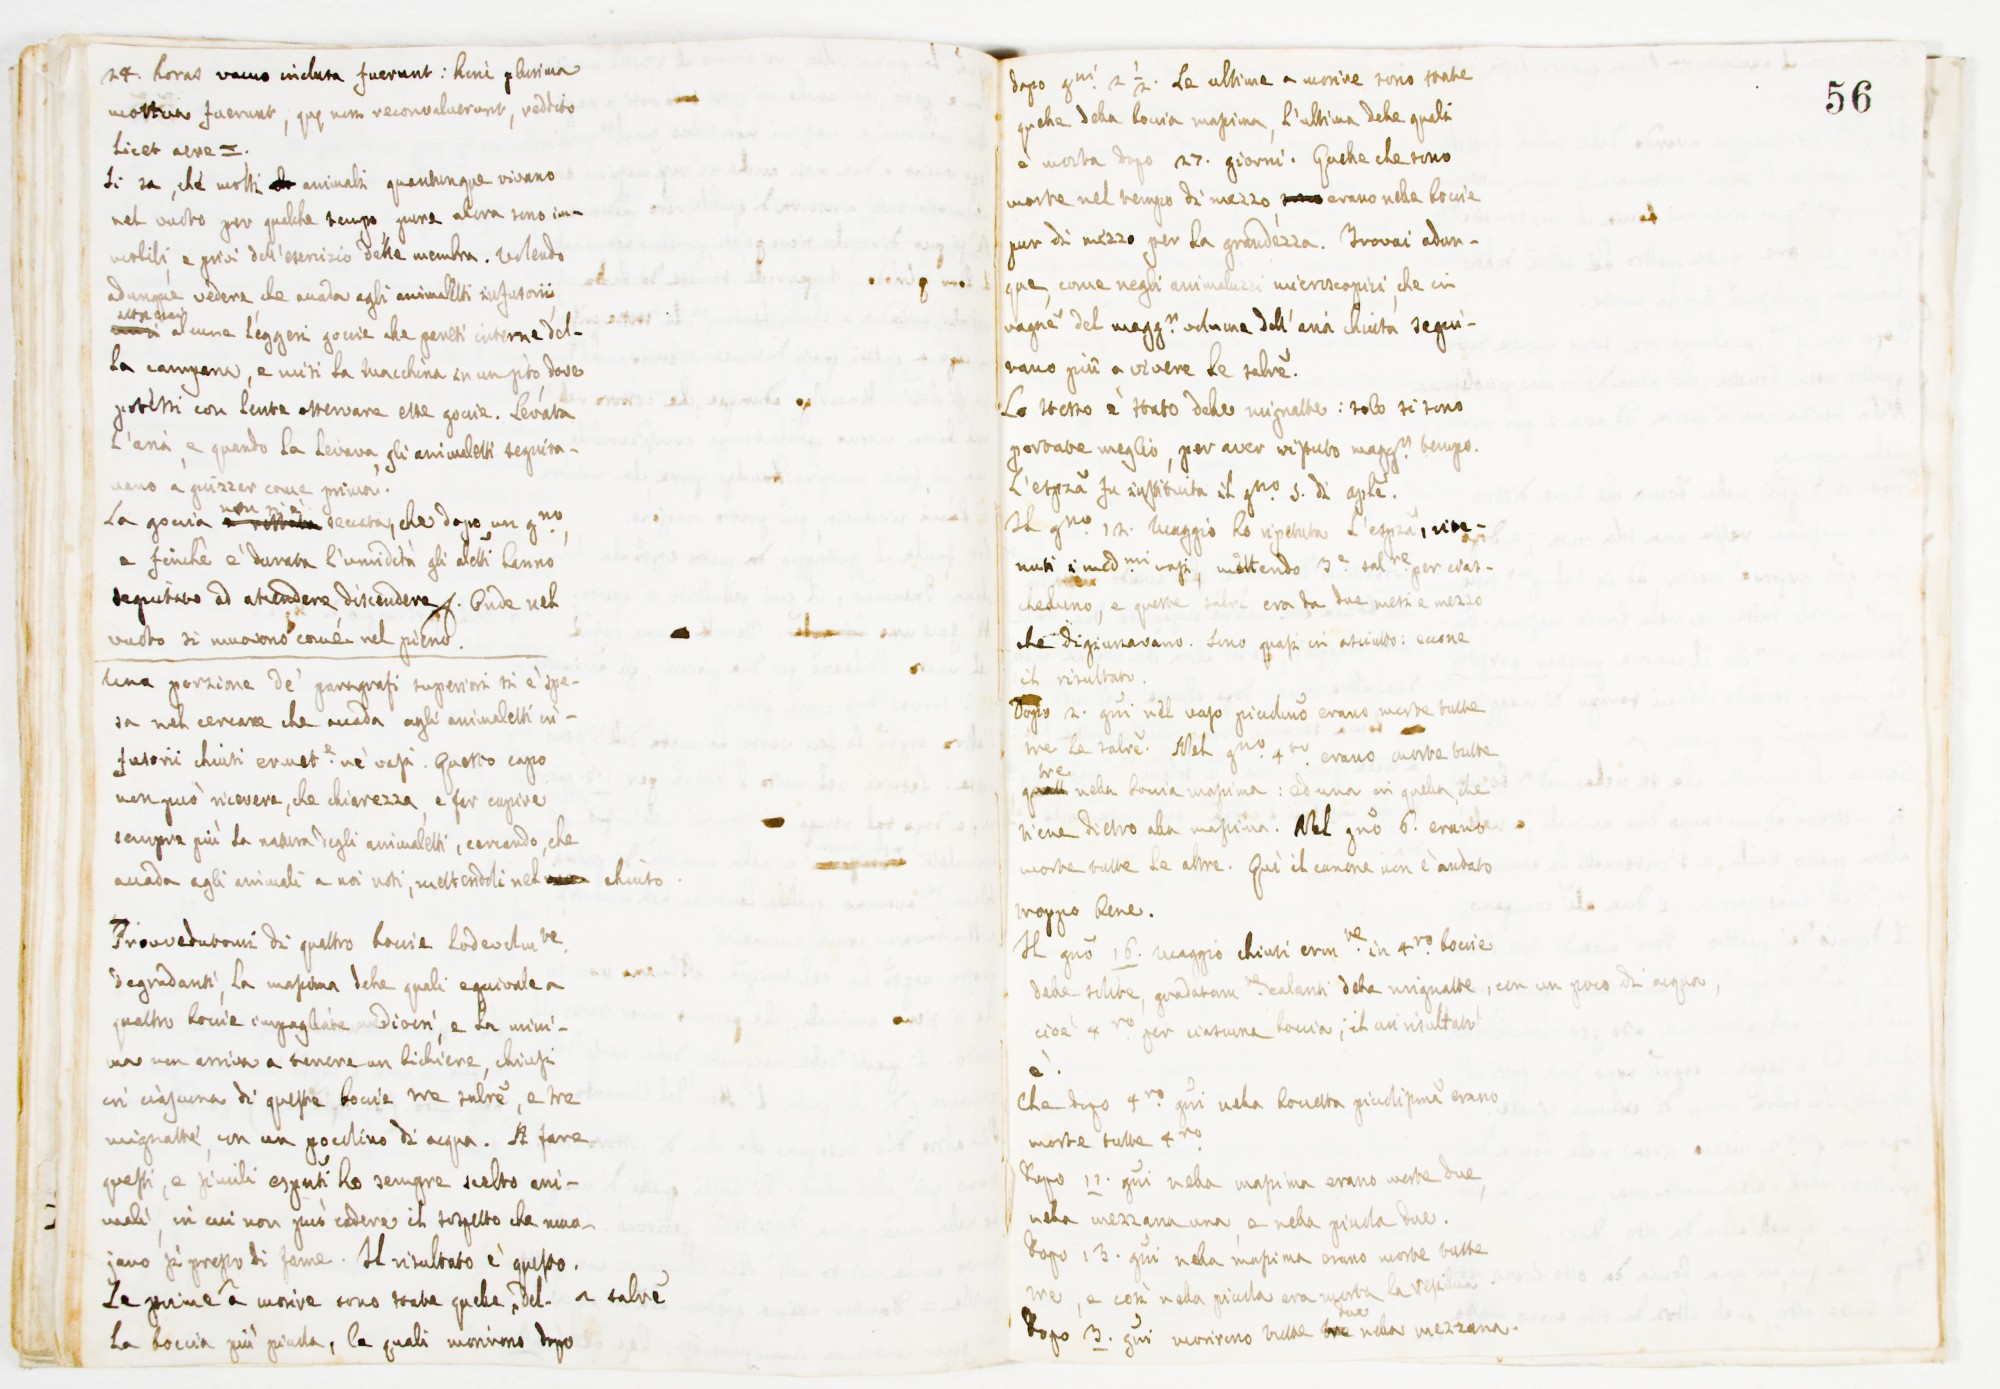 24. horas vacuo inclusa fuerunt: hinc plurima
mortua fuerunt, quę non reconvaluerunt, reddito
licet aere =.
Si sa, che molti animali quantunque vivano
nel vuoto per qualche tempo, pure allora sono im-
mobili, e privi dell'esercizio delle membra. Volendo
adunque vedere che accada agli animaletti infusorii,
alcune leggeri goccie che pareti interne del-
la campana, e misi la Macchina in un sito, dove
potessi con lente osservare esse goccie. Levata
l'aria, e quando la levava, gli animaletti seguita-
vano a guizzar come prima.
La goccia non si è seccata, che dopo un gno,
e finchè è durata l'umidità gli aletti hanno
seguitato ad ascendere, discendere &. Onde nel
vuoto si muovono come nel pieno.
Una porzione de' paragrafi superiori si è spe-
sa nel cercare che accada agli animaletti in-
fusorii chiusi ermete nè vasi. Questo capo
non può ricevere, che chiarezza, e far capire
sempre più la natura degli animaletti, cercando, che
accada agli animali a noi noti, mettendoli nel chiuso.
Provvedutomi di quattro boccie lodevolmve
degradanti, la massima delle quali equivale a
quattro boccie impagliate mediocri, e la mini-
ma non arriva a tenere un bichiere, chiusi
in ciascuna di queste boccie tre salre, e tre
mignatte, con un pocolino di acqua. A fare
questi, e simili espnti ho sempre scelto ani-
mali, in cui non può cadere il sospetto che muo-
jano sì presto di fame. Il risultato è questo.
Le prime a morire sono state quelle del- a salre
la boccia più picciola, le quali morirono dopo
56
dopo gni 2 1/2. Le ultime a morire sono state
quelle della boccia massima, l'ultima delle quali
è morta dopo 27. giorni. Quelle che sono
morte nel tempo di mezzo, erano nelle boccie
pur di mezzo per la grandezza. Trovai adun-
que, come negli animaluzzi microscopici, che in
ragne del maggr volume dell'aria chiusa segui-
vano più a vivere le salre.
Lo stesso è stato delle mignatte: solo si sono
portate meglio, per aver vissuto maggr tempo.
L'espza fu instituita il gno 5. di aple.
Il gno 12. Maggio ho ripetuta l'espza, rite-
nuti i medmi vasi, mettendo 3e salre per cias-
cheduno, e queste salre era da due mesi e mezzo
che digiunavano. Sono quasi in asciutto: eccone
il risultato.
Dopo 2. gni nel vaso piccolino erano morte tutte
tre le salre. Nel gno 4ro. erano morte tutte
tre nella boccia massima: ed una in quella, che
viene dietro alla massima. Nel gno 6. erano
morte tutte le altre. Qui il canone non è andato
troppo bene.
Il gno 16. Maggio chiusi ermve in 4ro boccie
delle solite, gradatamte calanti delle mignatte, con un poco di acqua,
cioè 4ro per ciascuna boccia; il cui risultato
è.
Che dopo 4ro gni nella boccetta picciolissima erano
morte tutte 4ro
Dopo 12. gni nella massima erano morte due,
nella mezzana una, e nella picciola due.
Dopo 13. gni nella massima erano morte tutte
tre, e così nella picciola era morta la residua.
Dopo 3. gni morirono tutte due nella mezzana.